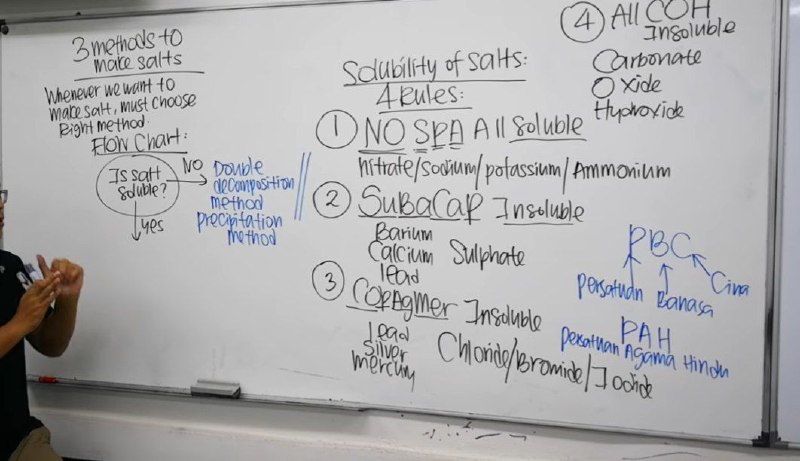 3 methods to
make salts
Whenever we want to
make salt, must choose
Right method.
Flow Chart:
Is salt
soluble?
NO
yes
Double
decomposition
method
precipitation
method
Solubility of salts:
4 Rules:
① NO SPA All soluble
nitrate/sodium/potassium/Ammonium
② SUBaCaP Insoluble
Barium
Calcium
lead
Sulphate
③ COPAgMer Insoluble
lead
silver
mercury
Chloride/Bromide/Iodide
④ All COH
Insoluble
Carbonate
Oxide
Hydroxide
PBC
Persatuan Bahasa Cina
PAH
persatuan Agama Hindu